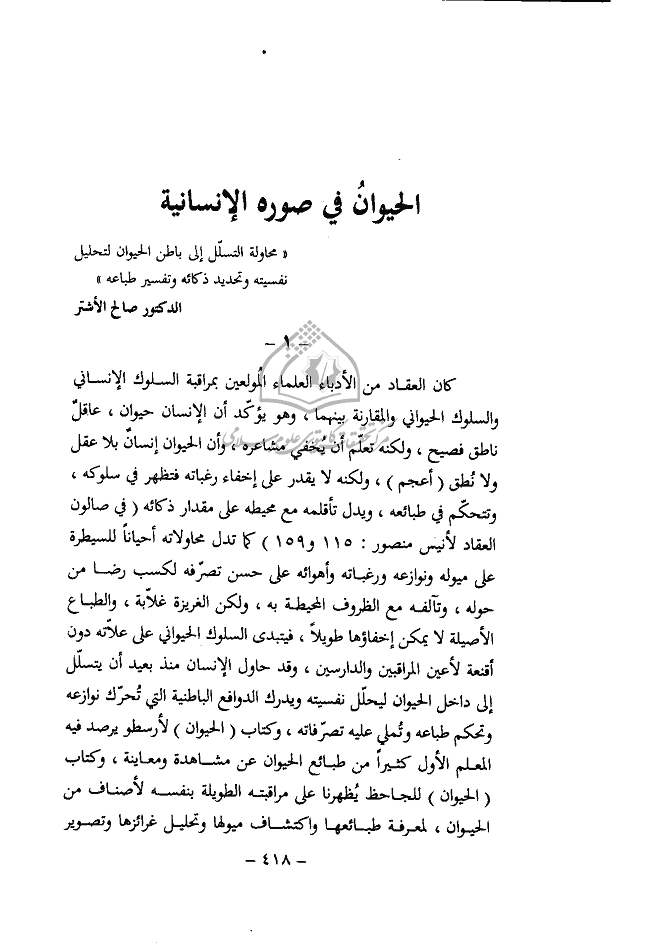 الحيوانُ في صوره الإنسانية
« محاولة التسلّل إلى باطن الحيوان لتحليل
نفسيته وتحديد ذكائه وتفسير طباعه »
الدكتور صالح الأشتر
- ١ -
كان العقاد من الأدباء العلماء المُولعين بمراقبة السلوك الإنساني
والسلوك الحيواني والمقارنة بينهما ، وهو يؤكّد أن الإنسان حيوان ، عاقلٌ
ناطق فصيح ، ولكنه تعلّم أن يُخفي مشاعره ، وأن الحيوان إنسانٌ بلا عقل
ولا نُطق ( أعجم ) ، ولكنه لا يقدر على إخفاء رغباته فتظهر في سلوكه ،
وتتحكّم في طبائعه ، ويدل تأقلمه مع محيطه على مقدار ذكائه ( في صالون
العقاد لأنيس منصور : ١١٥ و١٥٩ ) كما تدل محاولاته أحياناً للسيطرة
على ميوله ونوازعه ورغباته وأهوائه على حسن تصرّفه لكسب رضا من
حوله ، وتآلفه مع الظروف المحيطة به ، ولكن الغريزة غلاّبة ، والطباع
الأصيلة لا يمكن إخفاؤها طويلاً ، فيتبدى السلوك الحيواني على علاّته دون
أقنعة لأعين المراقبين والدارسين ، وقد حاول الإنسان منذ بعيد أن يتسلّل
إلى داخل الحيوان ليحلّل نفسيته ويدرك الدوافع الباطنية التي تُحرّك نوازعه
وتحكم طباعه وتُملي عليه تصرّفاته ، وكتاب ( الحيوان ) لأرسطو يرصد فيه
المعلم الأول كثيراً من طبائع الحيوان عن مشاهدة ومعاينة ، وكتاب
( الحيوان ) للجاحظ يُظهرنا على مراقبته الطويلة بنفسه لأصناف من
الحيوان ، لمعرفة طبائعها واكتشاف ميولها وتحليل غرائزها وتصوير
- ٤١٨ -